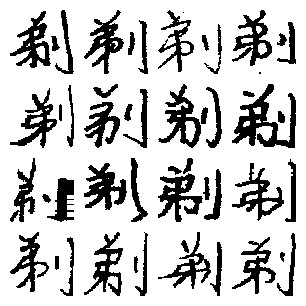 剃剃剃剃
剃剃剃剃
剃剃剃剃
剃剃剃剃